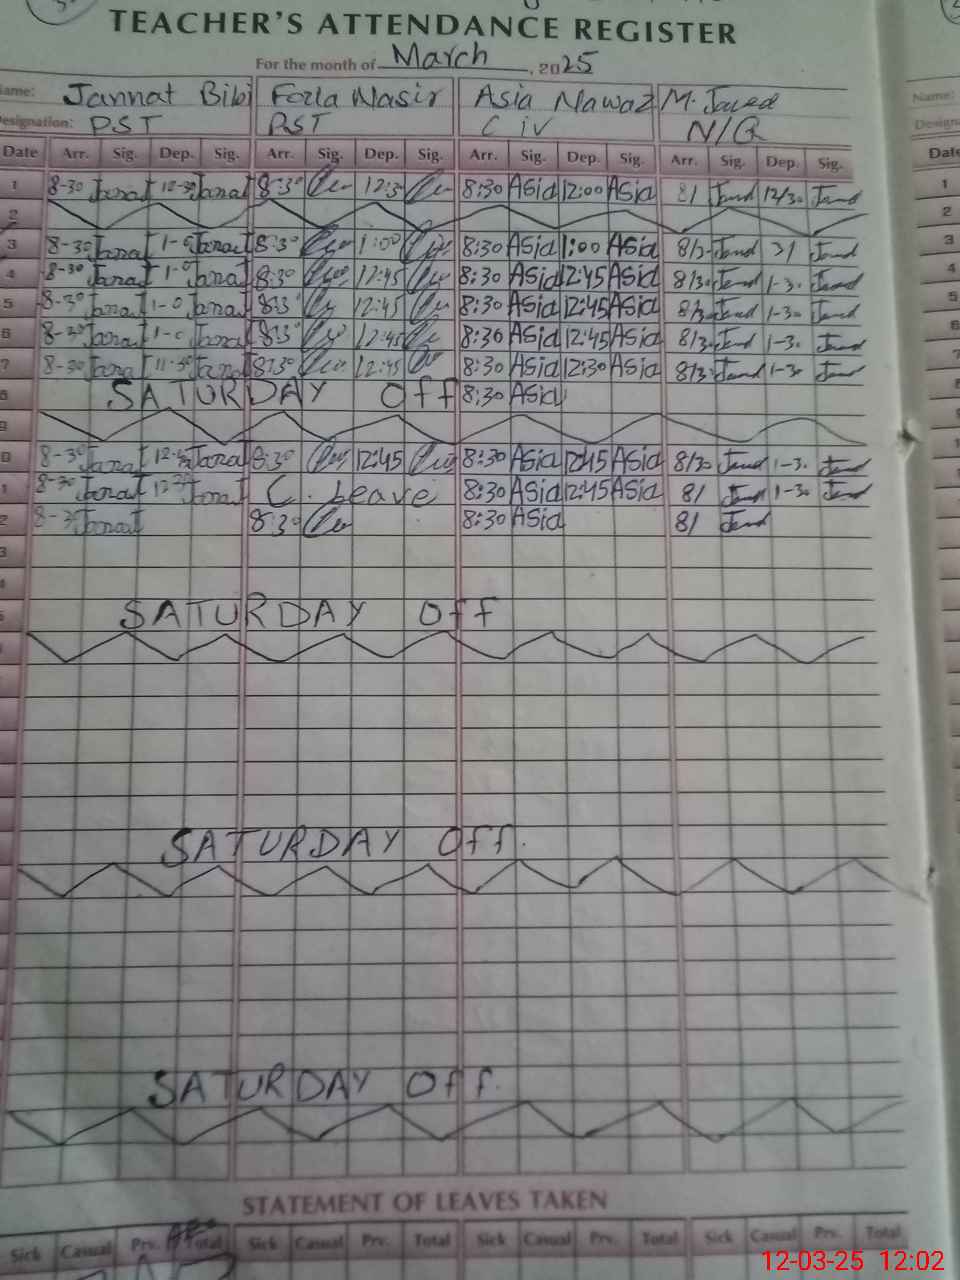 TEACHER'S ATTENDANCE REGISTER
For the month of March, 2025
Name: Jannat Bibi Fozla Nasir Asia Nawaz M. Javed
Designation: PST PST C iv N/Q
Date Arr. Sig. Dep. Sig. Arr. Sig. Dep. Sig. Arr. Sig. Dep. Sig. Arr. Sig. Dep. Sig.
1 8-30 Janat 12-30 Janat 8:30 12:30 8:30 Asia 12:00 Asia 8/ 12/30
2
3 8-30 Janat 1-0 Janat 8:30 1:00 8:30 Asia 1:00 Asia
4 8-30 Janat 1-0 Janat 8:30 12:45 8:30 Asia 12:45 Asia 8/30 1-30
5 8-30 Janat 1-0 Janat 12:45 8:30 Asia 12:45 Asia 8/30 1-30
6 8-30 Janat 1-0 Janat 12:45 8:30 Asia 12:45 Asia 8/30 1-30
7 8-30 Janat 11-30 Janat 8:30 12:45 8:30 Asia 12:30 Asia 8/30 1-30
8 SATURDAY Off 8:30 Asia
9
0 8-30 Janat 12-45 Janat 8:30 12:45 8:30 Asia 12:45 Asia 8/30 1-30
1 8-30 Janat Janat C. Leave 8:30 Asia 12:45 Asia 8/ 1-30
2 8-30 Janat 8:30 8:30 Asia 8/
3
4
5 SATURDAY Off
SATURDAY Off.
SATURDAY Off.
STATEMENT OF LEAVES TAKEN
Sick Casual Prv. Total Sick Casual Prv. Total Sick Casual Prv. Total Sick Casual Prv. Total
12-03-25 12:02
Name:
Date
1
2
3
4
5